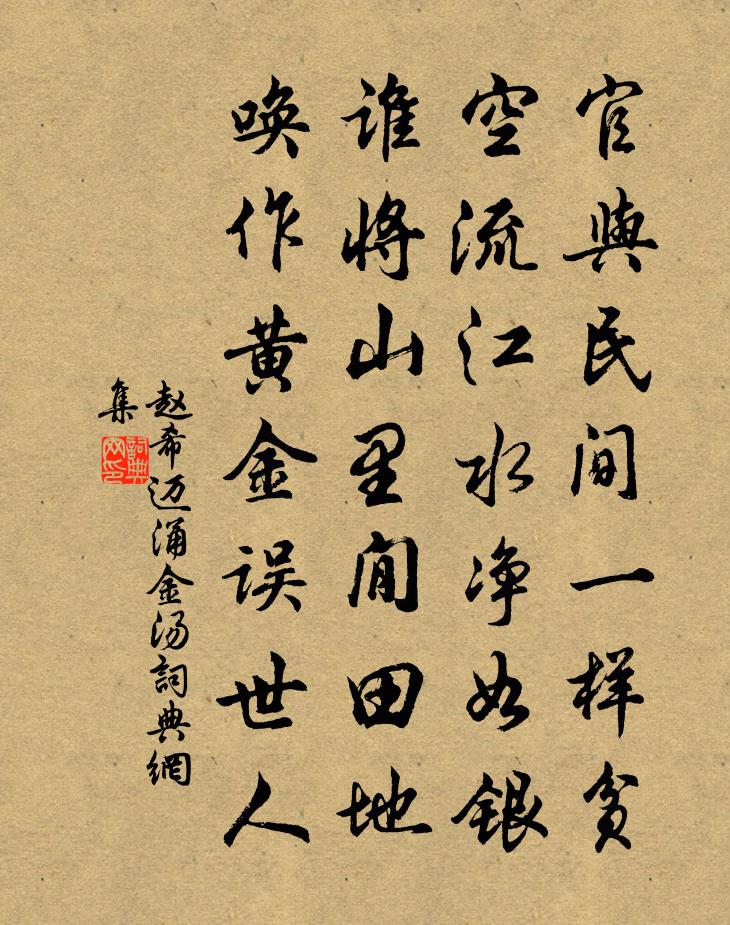 官與民间一样贫
空流江水净如银
谁将山里间田地
唤作黄金误世人
赵希迈涌金汤詞典網
集
詞典
网印